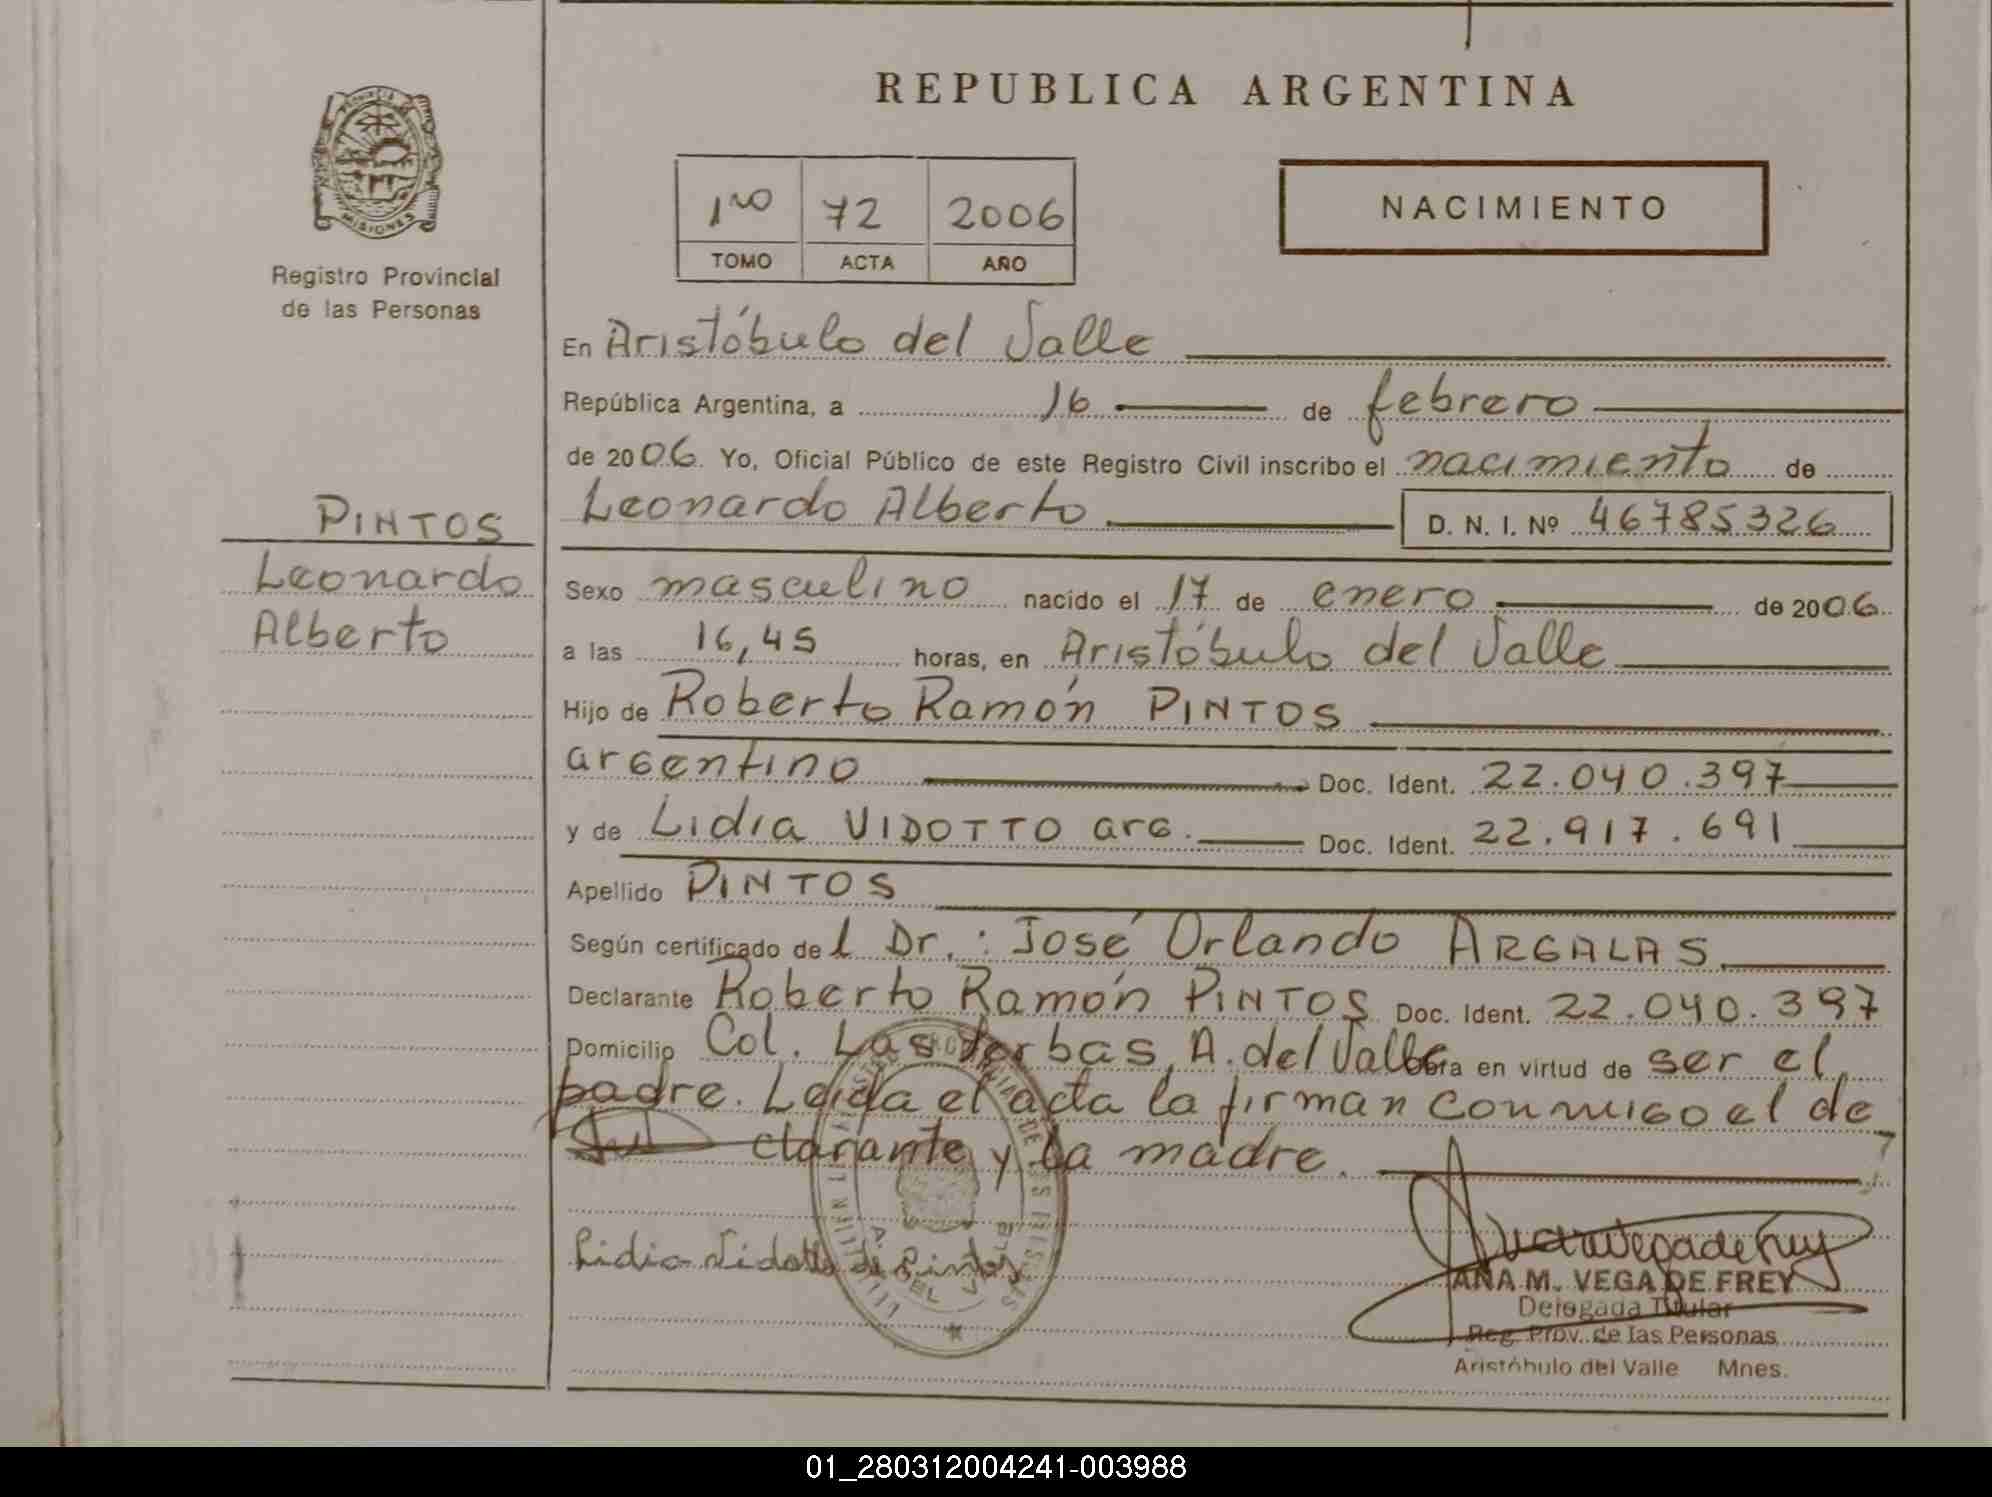 REPUBLICA ARGENTINA
PROVINCIA
MISIONES
Registro Provincial
de las Personas
1ro 72 2006
TOMO ACTA AÑO
NACIMIENTO
En Aristóbulo del Valle
República Argentina, a 16 de febrero
de 2006. Yo, Oficial Público de este Registro Civil inscribo el nacimiento de
Leonardo Alberto D. N. I. Nº 46785326
PINTOS
Leonardo
Alberto
Sexo masculino nacido el 17 de enero de 2006
a las 16,45 horas, en Aristóbulo del Valle
Hijo de Roberto Ramón PINTOS
argentino Doc. Ident. 22.040.397
y de Lidia VIDOTTO arg. Doc. Ident. 22.917.691
Apellido PINTOS
Según certificado del Dr.: José Orlando ARGALAS
Declarante Roberto Ramón PINTOS Doc. Ident. 22.040.397
Domicilio Col. Las Yerbas, A. del Valle en virtud de ser el
padre. Leída el acta la firman conmigo el de
clarante y la madre.
Lidia Vidotto de Pintos
A. DEL VALLE
Ana M Vega de Frey
ANA M. VEGA DE FREY
Delegada Titular
Reg. Prov. de las Personas
Aristóbulo del Valle Mnes.
01_280312004241-003988